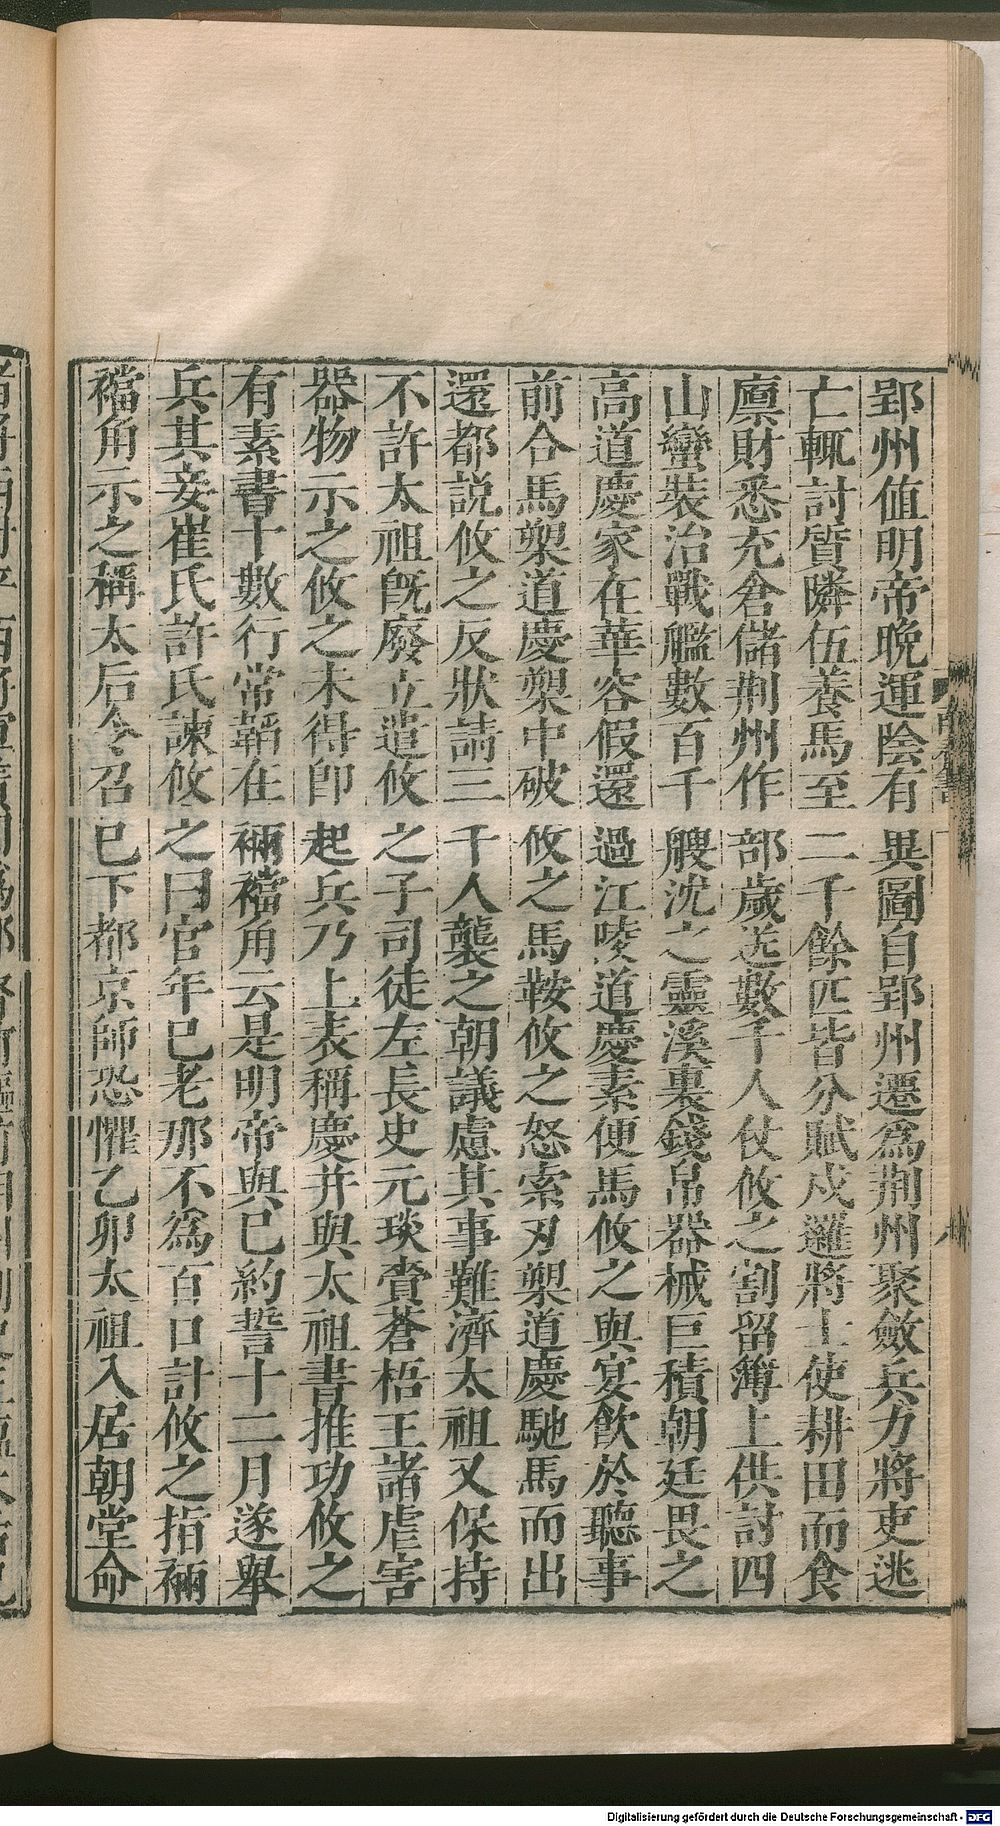 郢州值明帝晚運陰有異圖自郢州遷爲荆州聚斂兵力將吏逃
亡輒討質隣伍養馬至二千餘匹皆分賦戍邏將士使耕田而食
廪財悉充倉儲荆州作部歲送數千人仗攸之割留簿上供討四
山蠻裝治戰艦數百千艘沈之靈溪裏錢帛器械巨積朝廷畏之
高道慶家在華容假還過江陵道慶素便馬攸之與宴飲於聽事
前合馬槊道慶槊中破攸之馬鞍攸之怒索刃槊道慶馳馬而出
還都説攸之反狀請三千人襲之朝議慮其事難濟太祖又保持
不許太祖旣廢立遣攸之子司徒左長史元琰賫蒼梧王諸虐害
器物示之攸之未得卽起兵乃上表稱慶并與太祖書推功攸之
有素書十數行常韜在裲襠角云是明帝與巳約誓十二月遂舉
兵其妾崔氏許氏諫攸之曰官年巳老那不爲百口計攸之指裲
襠角示之稱太后令召巳下都京師恐懼乙卯太祖入居朝堂命
Digitalisierung gefördert durch die Deutsche Forschungsgemeinschaft - DFG